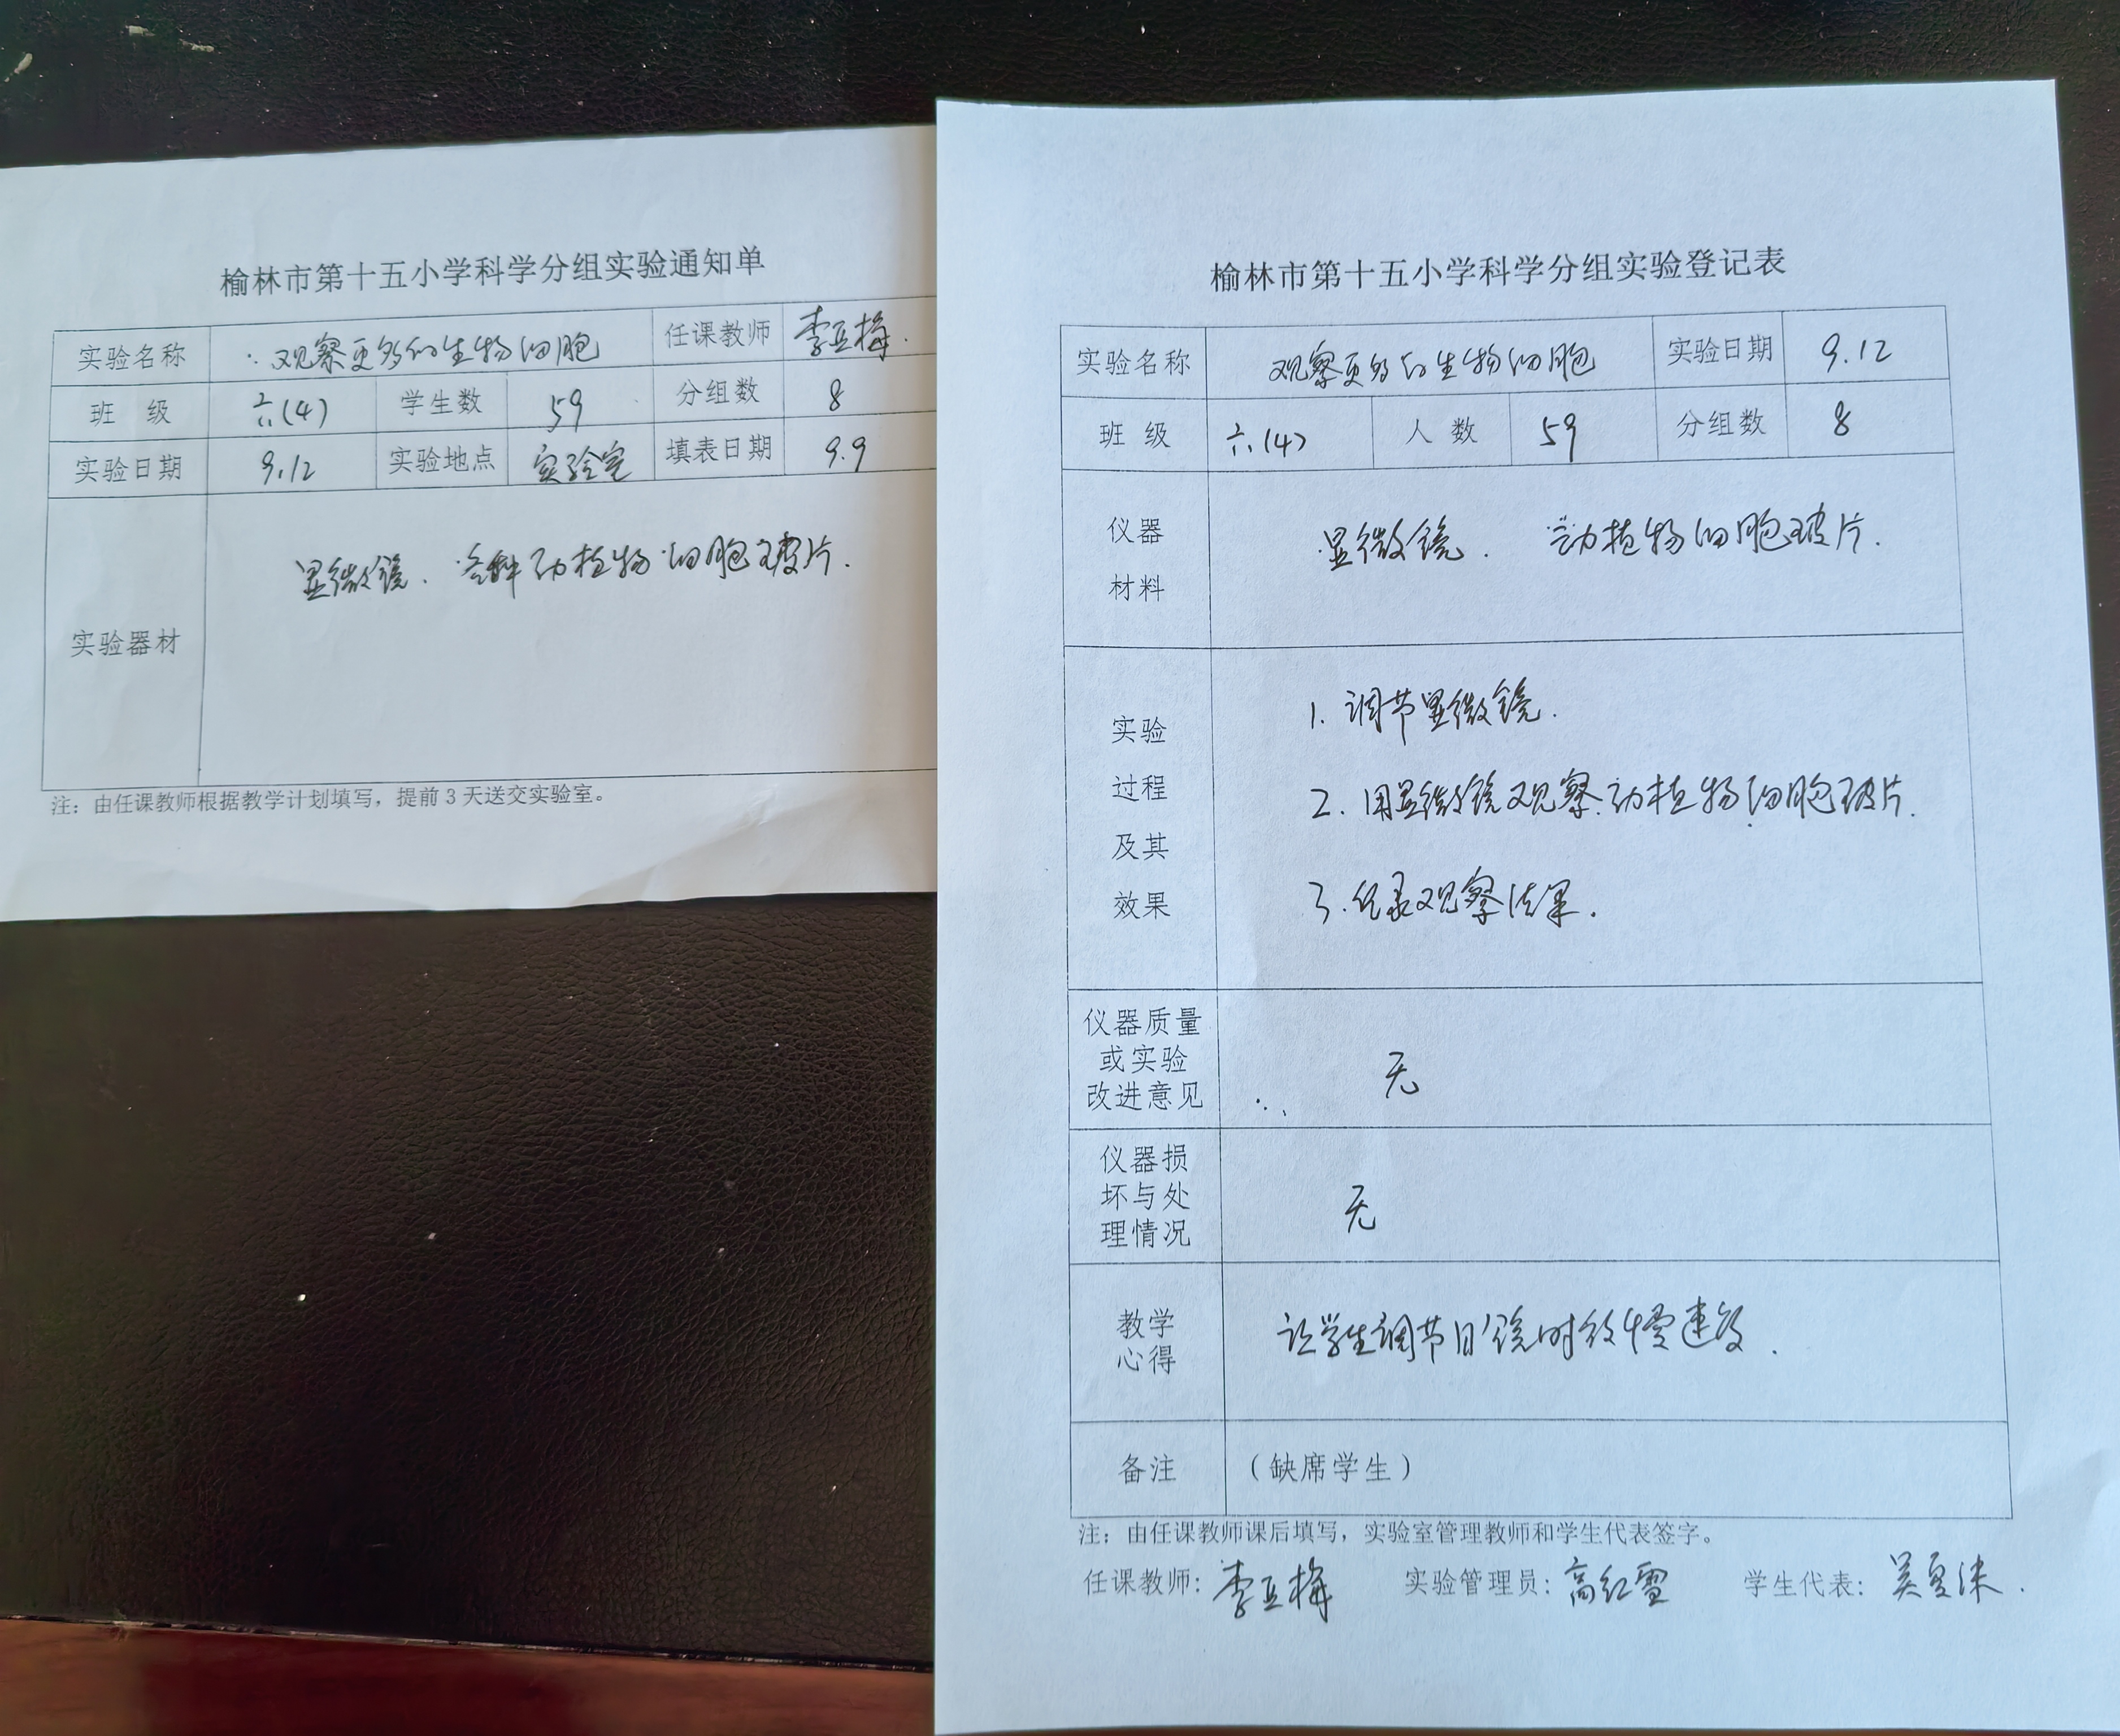 榆林市第十五小学科学分组实验通知单
实验名称 观察更多的生物细胞 任课教师 李亚梅
班 级 六(4) 学生数 59 分组数 8
实验日期 9.12 实验地点 实验室 填表日期 9.9
实验器材 显微镜、各种动植物细胞玻片.
注：由任课教师根据教学计划填写，提前3天送交实验室。
榆林市第十五小学科学分组实验登记表
实验名称 观察更多的生物细胞 实验日期 9.12
班 级 六(4) 人 数 59 分组数 8
仪器
材料
显微镜. 动植物细胞玻片.
实验
过程
及其
效果
1. 调节显微镜.
2. 用显微镜观察动植物细胞玻片.
3. 纪录观察结果.
仪器质量
或实验
改进意见
无
仪器损
坏与处
理情况
无
教学
心得
让学生调节目镜时放慢速度.
备注 （缺席学生）
注：由任课教师课后填写，实验室管理教师和学生代表签字。
任课教师：李亚梅 实验管理员：高红雪 学生代表：吴夏